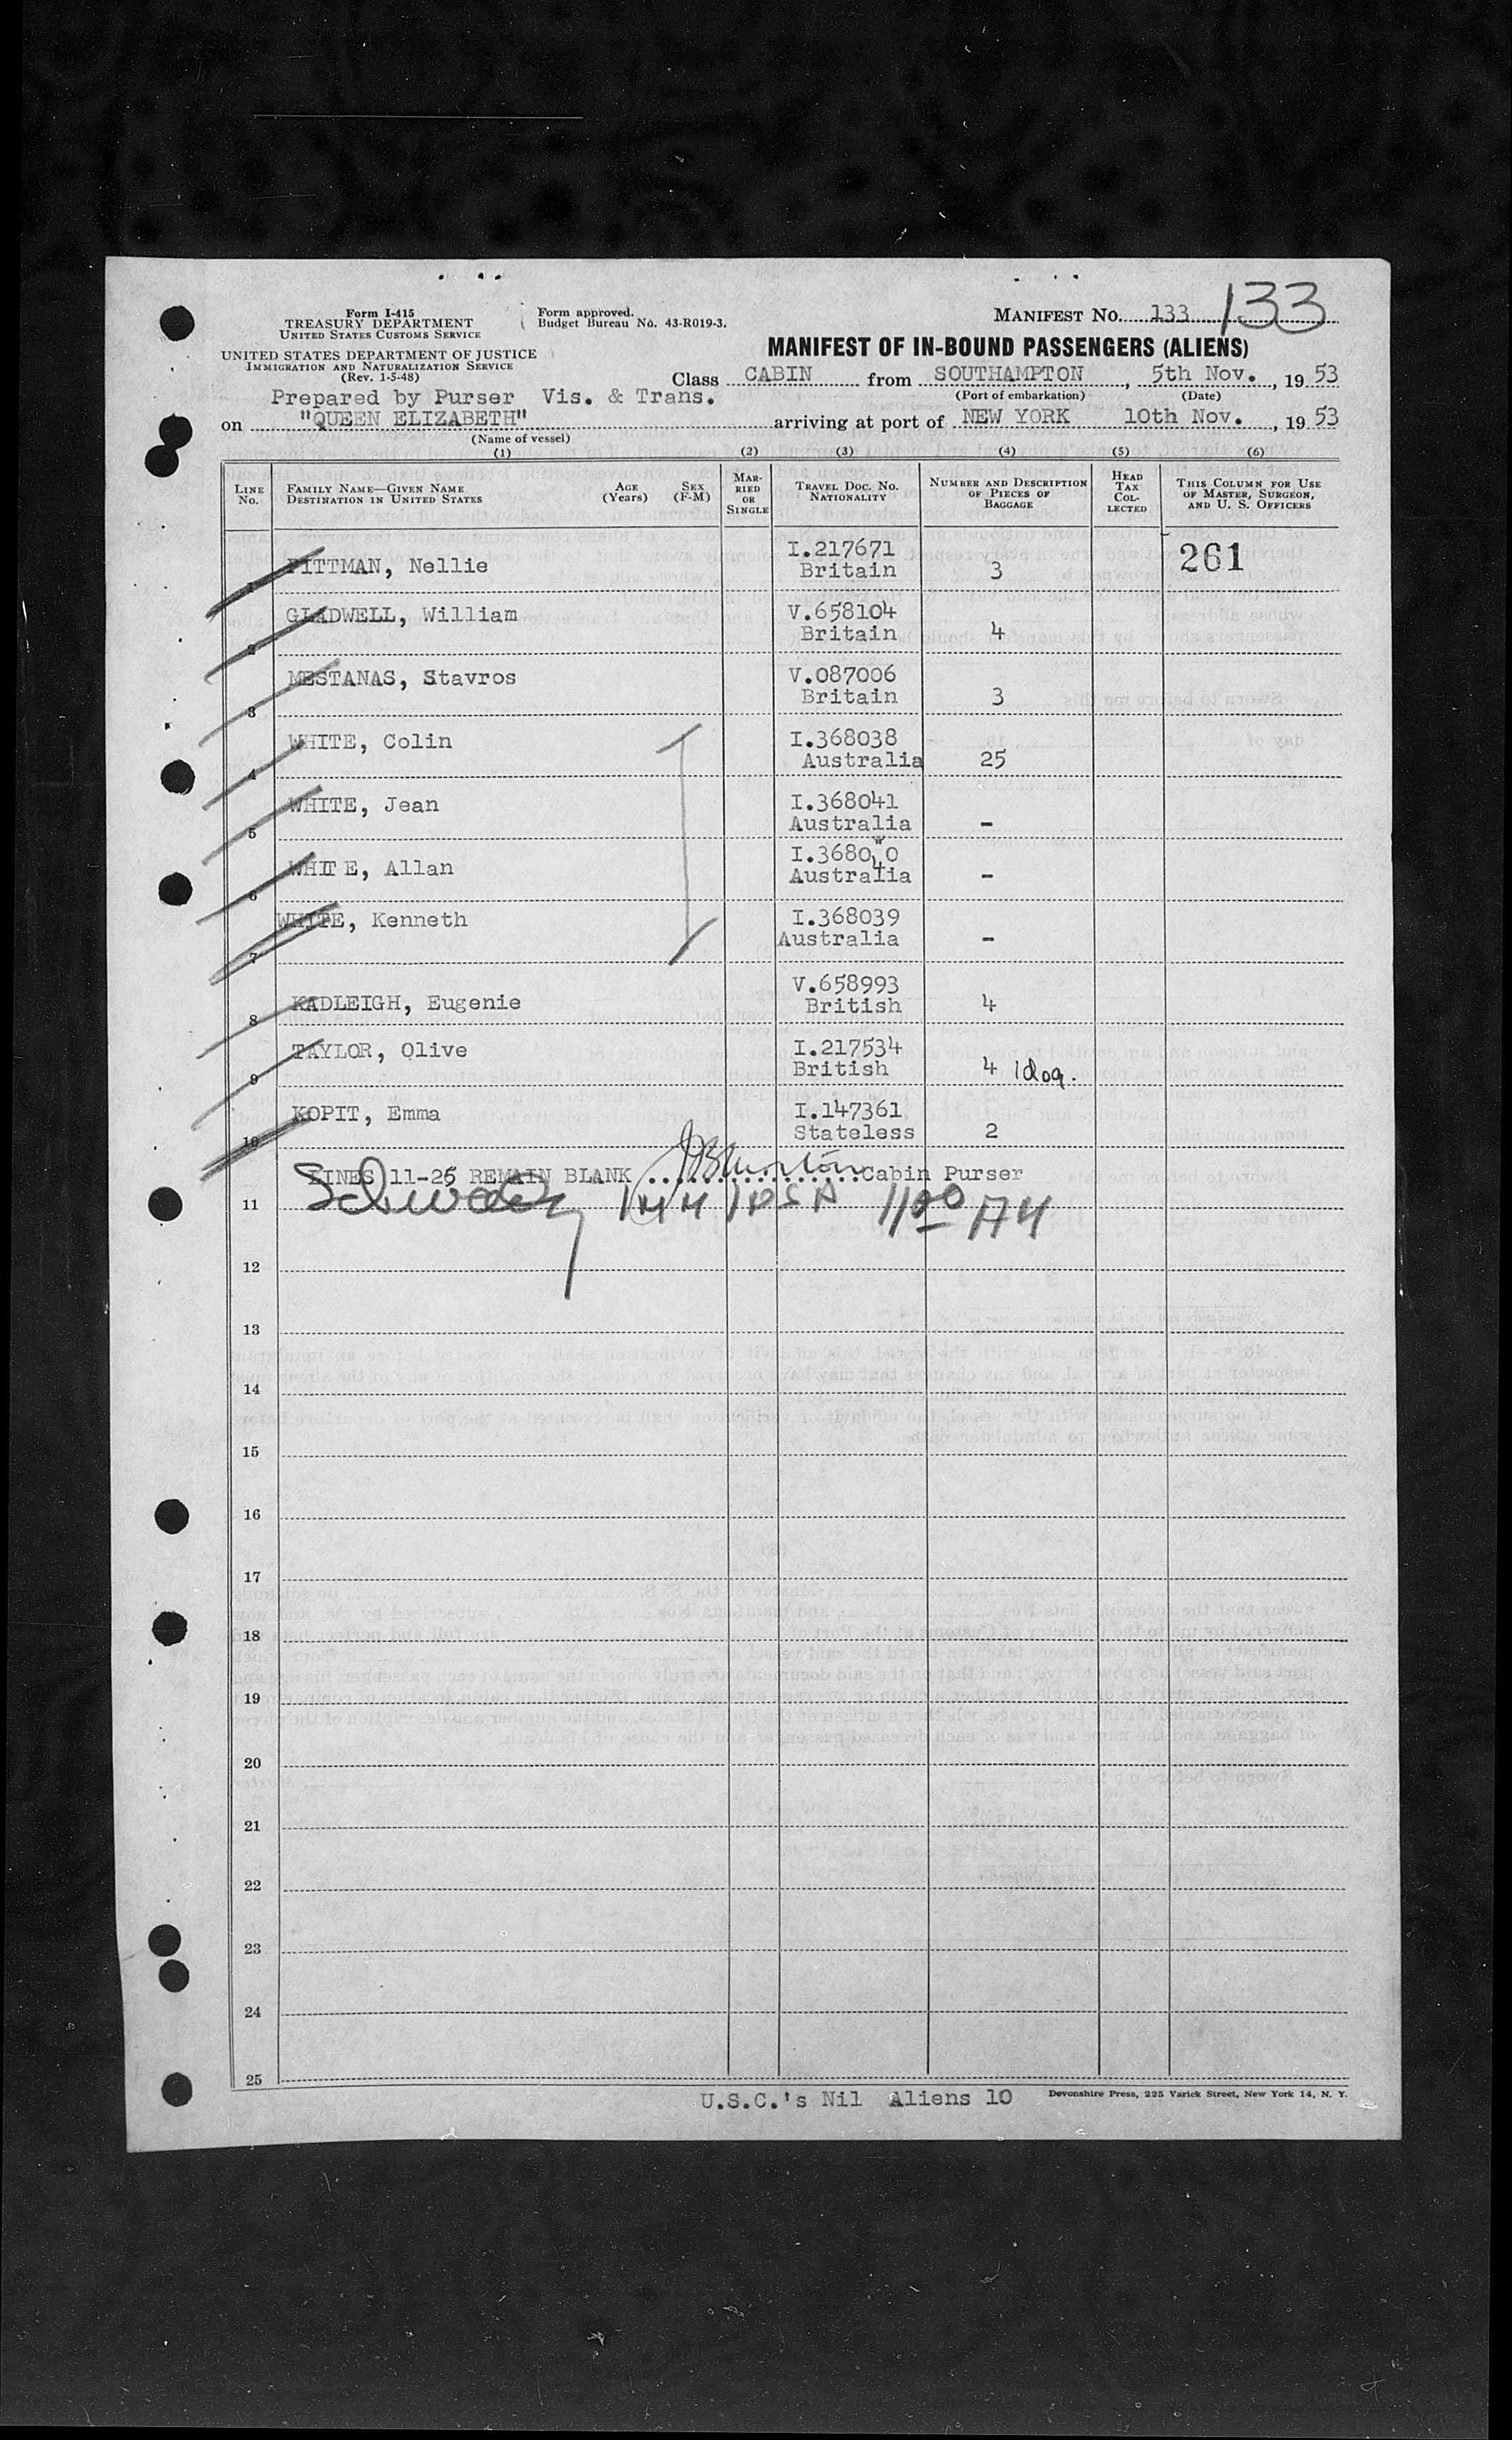 Form I-415
TREASURY DEPARTMENT
UNITED STATES CUSTOMS SERVICE
UNITED STATES DEPARTMENT OF JUSTICE
IMMIGRATION AND NATURALIZATION SERVICE
(Rev. 1-5-48)
Form approved.
Budget Bureau No. 43-R019-3.
MANIFEST NO. 133 133
MANIFEST OF IN-BOUND PASSENGERS (ALIENS)
Class CABIN from SOUTHAMPTON, 5th Nov., 19 53
(Port of embarkation) (Date)
Prepared by Purser Vis. & Trans.
on "QUEEN ELIZABETH" arriving at port of NEW YORK 10th Nov., 19 53
(Name of vessel)
(1) (2) (3) (4) (5) (6)
LINE No. FAMILY NAME—GIVEN NAME DESTINATION IN UNITED STATES AGE (Years) SEX (F-M) MARRIED OR SINGLE TRAVEL DOC. NO. NATIONALITY NUMBER AND DESCRIPTION OF PIECES OF BAGGAGE HEAD TAX COLLECTED THIS COLUMN FOR USE OF MASTER, SURGEON, AND U. S. OFFICERS
1 PITTMAN, Nellie I.217671 Britain 3 261
2 GLADWELL, William V.658104 Britain 4
3 MESTANAS, Stavros V.087006 Britain 3
4 WHITE, Colin I.368038 Australia 25
5 WHITE, Jean I.368041 Australia -
6 WHITE, Allan I.368040 Australia -
7 WHITE, Kenneth I.368039 Australia -
8 KADLEIGH, Eugenie V.658993 British 4
9 TAYLOR, Olive I.217534 British 4 1 dog.
10 KOPIT, Emma I.147361 Stateless 2
LINES 11-25 REMAIN BLANK Cabin Purser
11
12
13
14
15
16
17
18
19
20
21
22
23
24
25
U.S.C.'s Nil Aliens 10
Devonshire Press, 225 Varick Street, New York 14, N. Y.